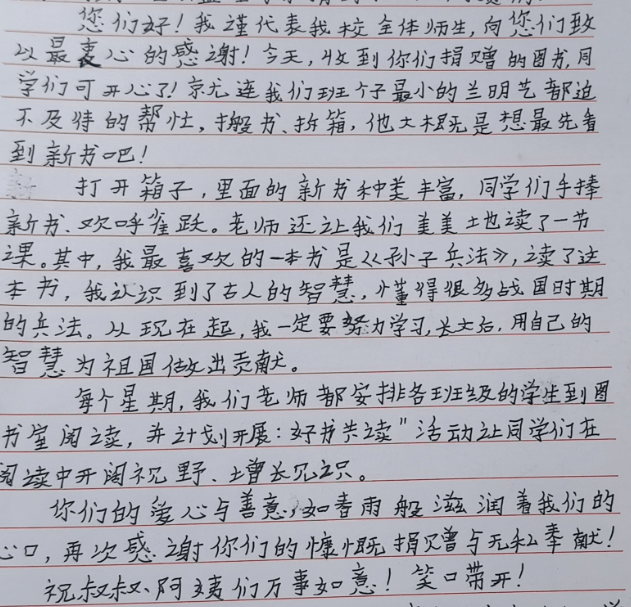 您们好！我谨代表我校全体师生，向您们致
以最衷心的感谢！今天，收到你们捐赠的图书，同
学们可开心了！就连我们班个子最小的兰明艺都迫
不及待的帮忙，搬书、拆箱，他大概是想最先看
到新书吧！
打开箱子，里面的新书种类丰富，同学们手捧
新书、欢呼雀跃。老师还让我们美美土也读了一节
课。其中，我最喜欢的一本书是《孙子兵法》，读了这
本书，我认识到了古人的智慧，懂得很多战国时期
的兵法。从现在起，我一定要努力学习，长大后，用自己的
智慧为祖国做出贡献。
每个星期，我们老师都安排各班级的学生到图
书室阅读，并计划开展：好书共读"活动让同学们在
阅读中开阔视野、增长见识。
你们的爱心与善意，如春雨般滋润着我们的
心口，再次感谢你们的慷慨捐赠与无私奉献！
祝叔叔、阿姨们万事如意！笑口带开！